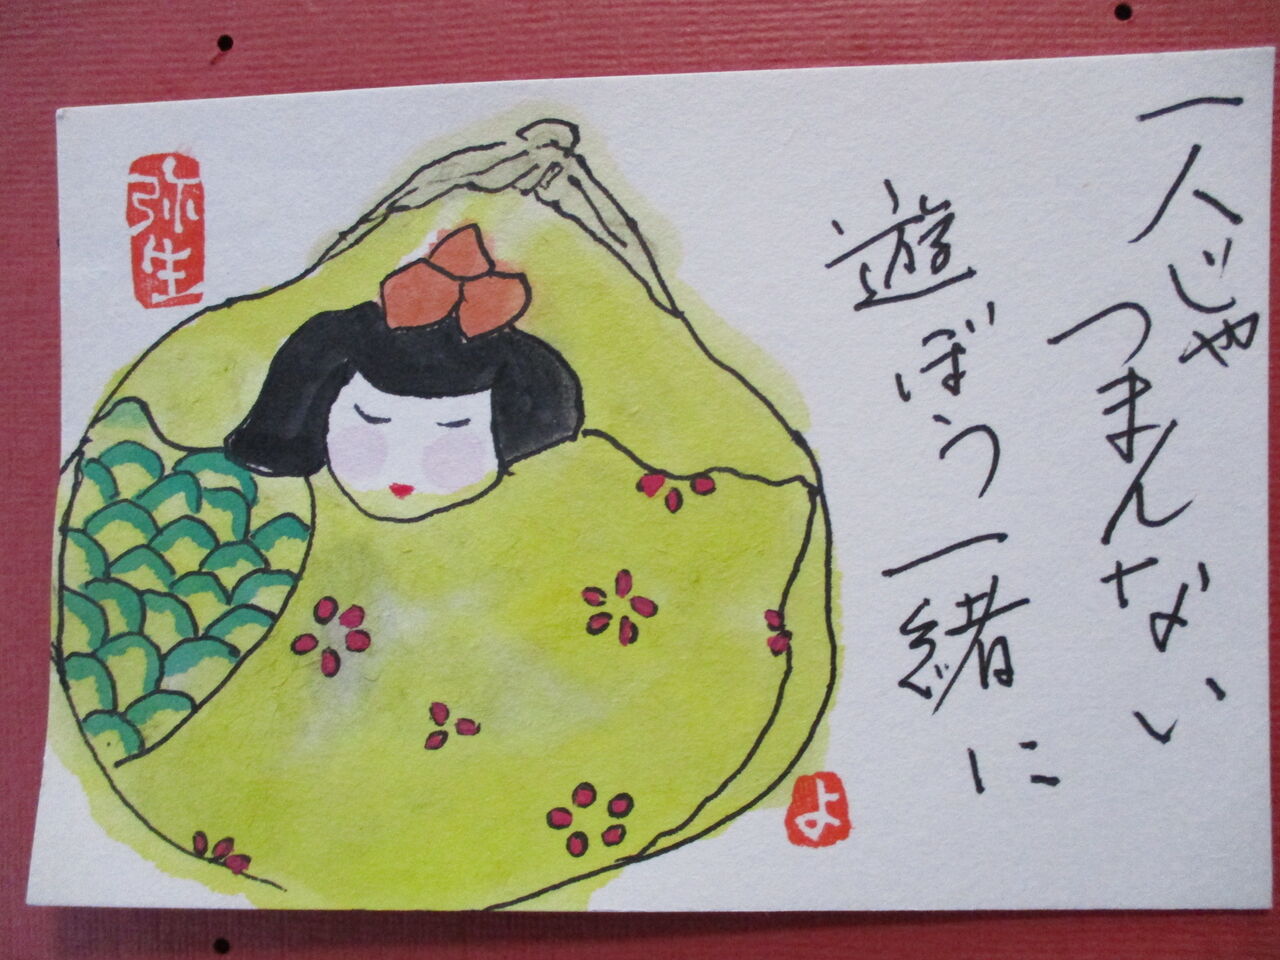 一人じゃ
つまんない
遊ぼう一緒に
弥生
よ